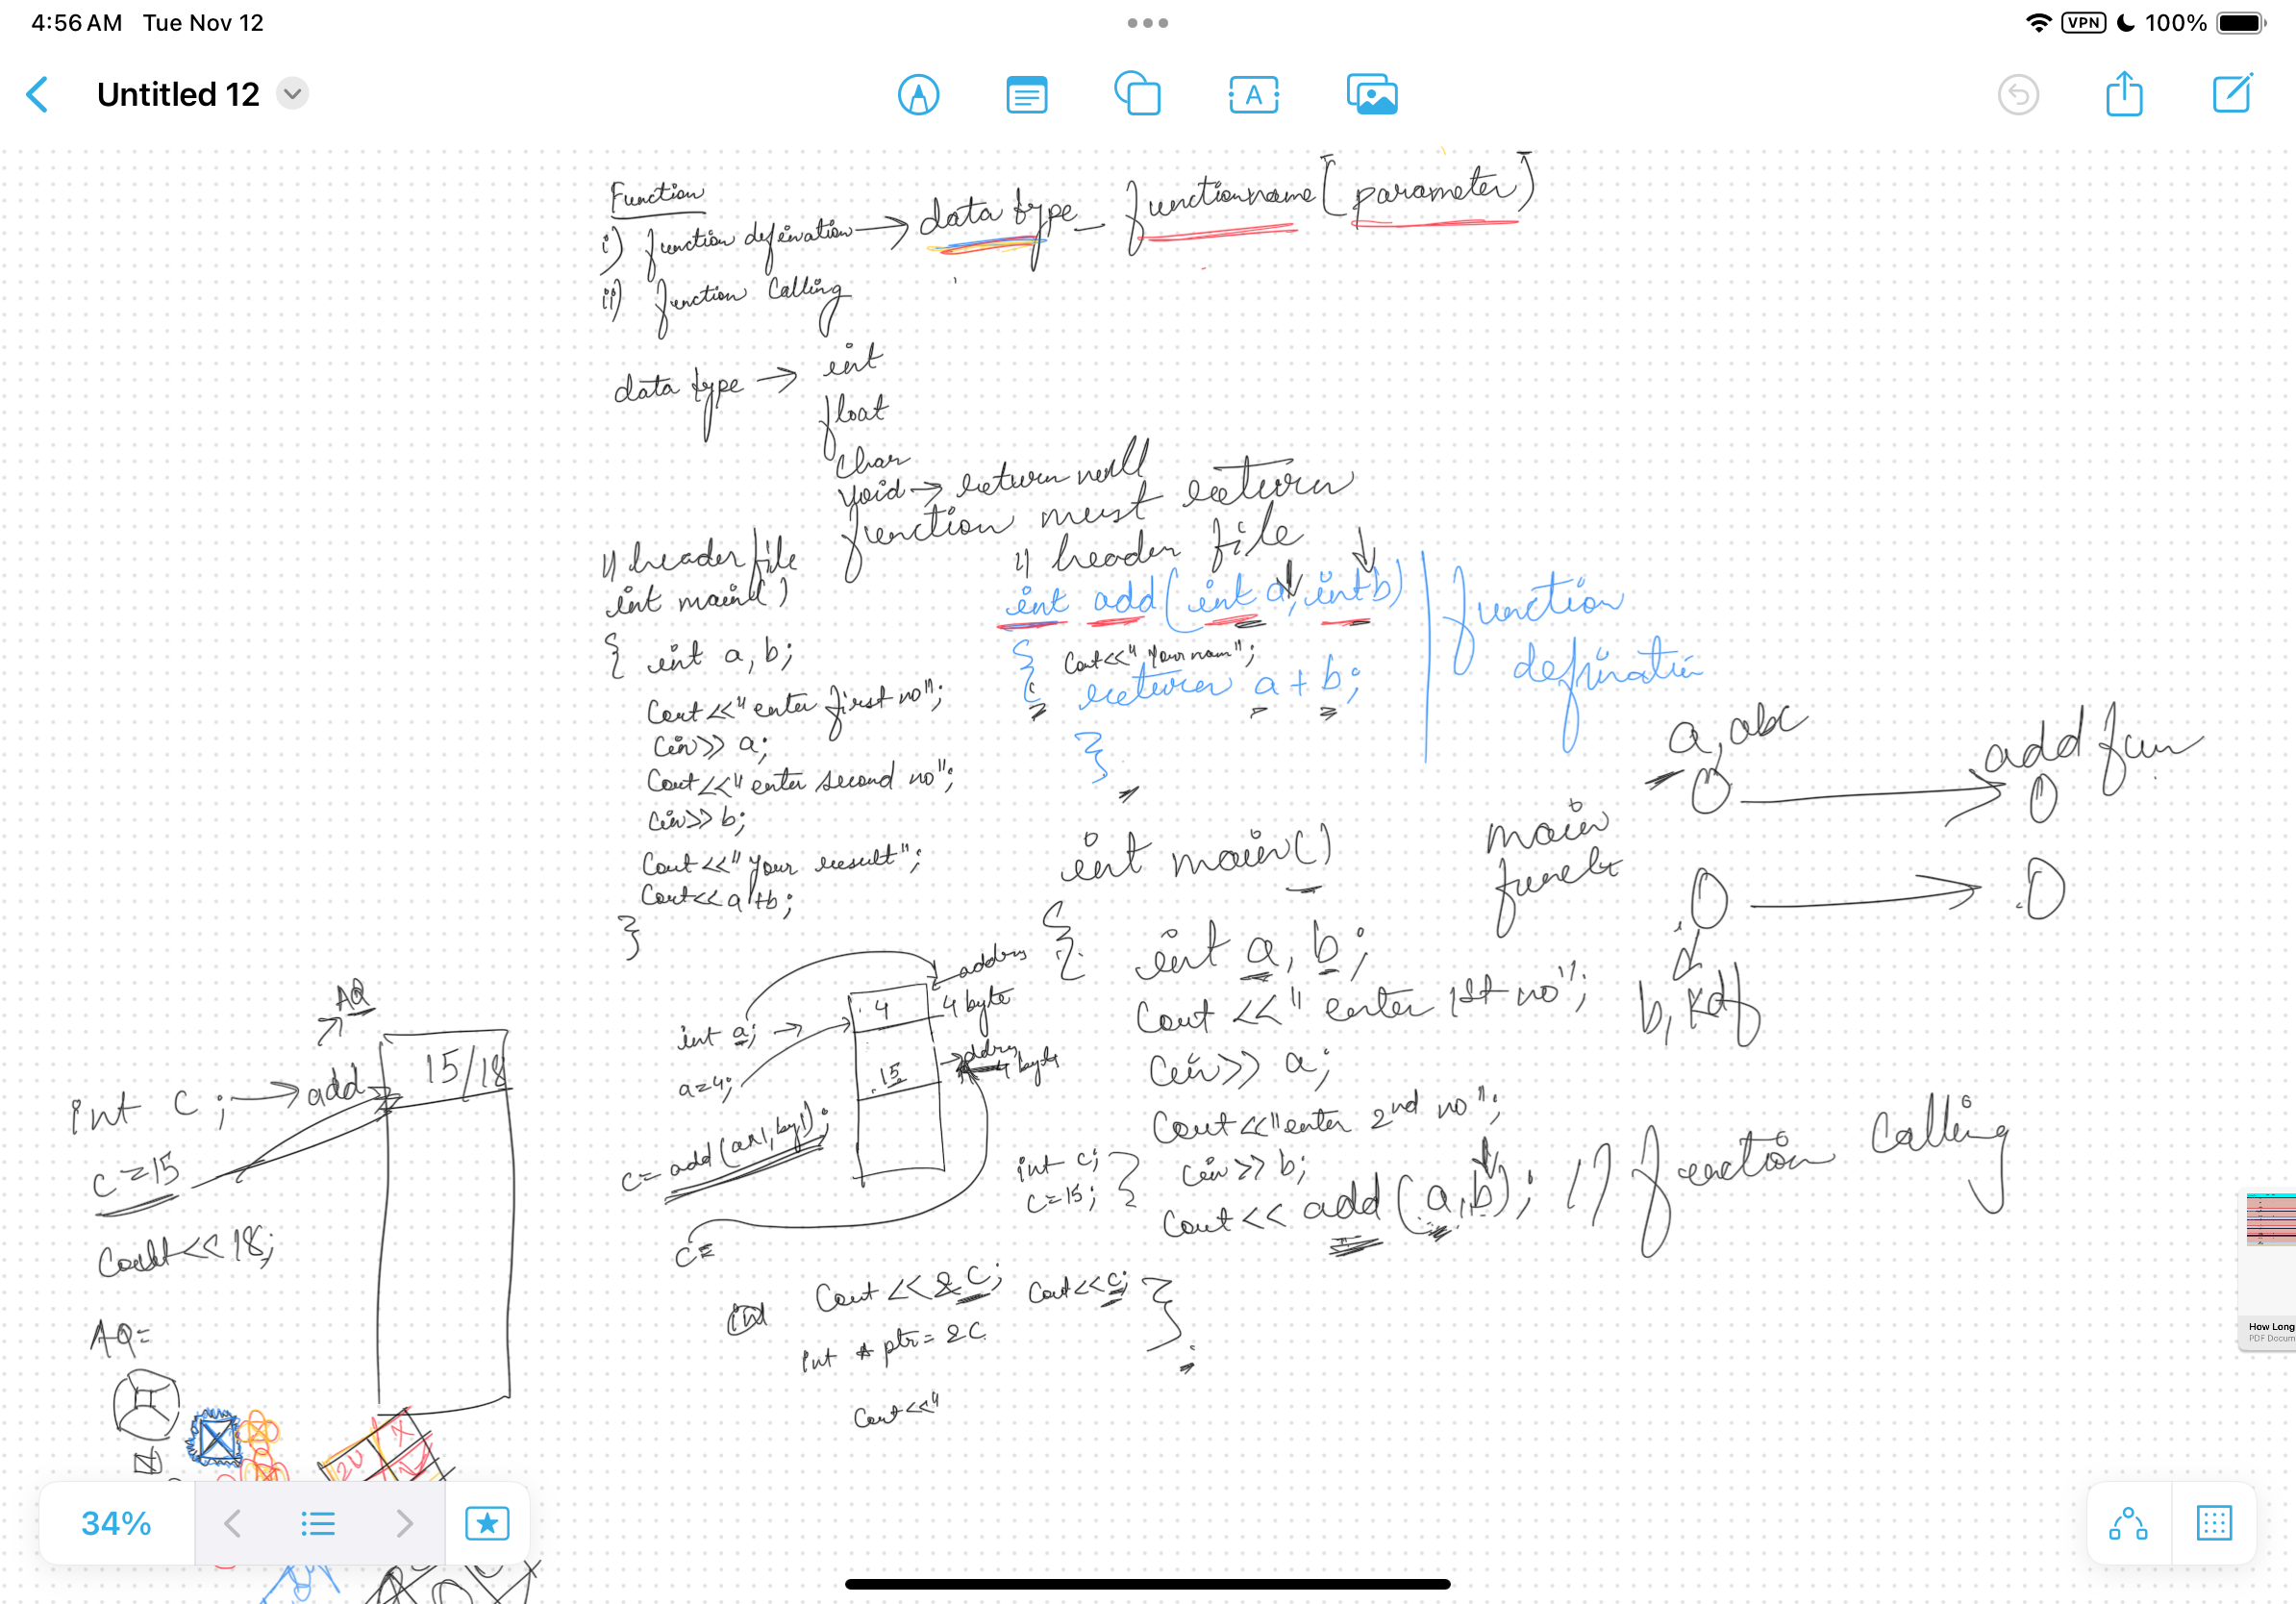 4:56 AM Tue Nov 12
VPN 100%
Untitled 12
Function
i) function defination → data type functionname (parameter)
ii) function Calling
data type → int
float
char
void → return null
function must return
// header file
int main()
{ int a, b;
Cout<<"enter first no";
Cin>> a;
Cout<<"enter second no";
Cin>> b;
Cout<<"your result";
Cout<< a+b;
}
// header file
int add(int a, int b)
{ Cout<<"your nam";
return a + b;
}
function
defination
int main()
{ int a, b;
Cout <<" enter 1st no";
Cin>> a;
Cout<<"enter 2nd no";
Cin>> b;
Cout<< add (a,b); // function Calling
int c;
c=15;
Cout <<&c; Cout<<c; }
int * ptr= &c
Cout<<"
a, abc
add fun
main
b,
int a; →
a=4;
4
15
address
4 byte
4 byte
c=
AQ
int c; → add
15/18
c=15
Cout<<18;
AQ=
How Long
PDF Docum
34%